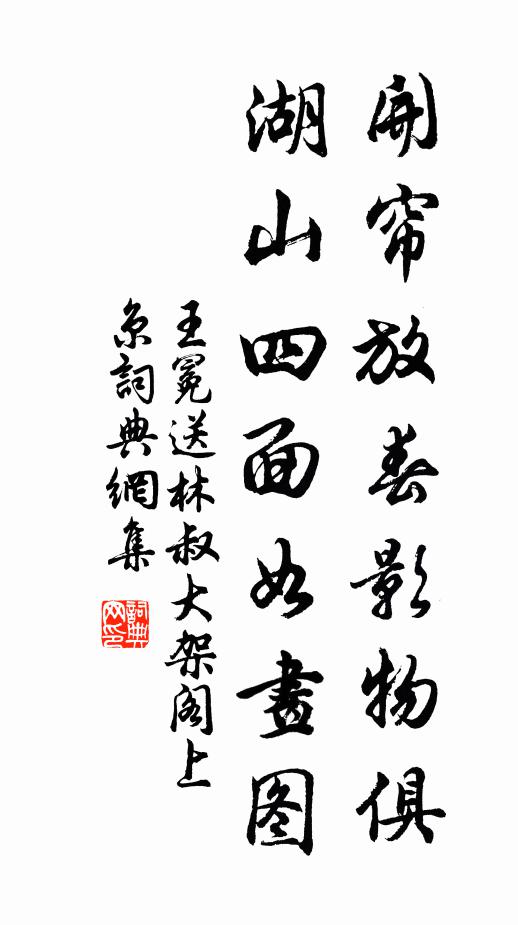 開帘放春影物俱
湖山四面如畫图
王冕送林叔大架阁上
京詞典網集
詞典
网印